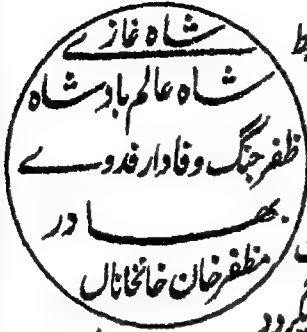 شاہ غازی
شاہ عالم بادشاہ
ظفر جنگ وفادار فدوے
بہادر
مظفر خان خانخاناں